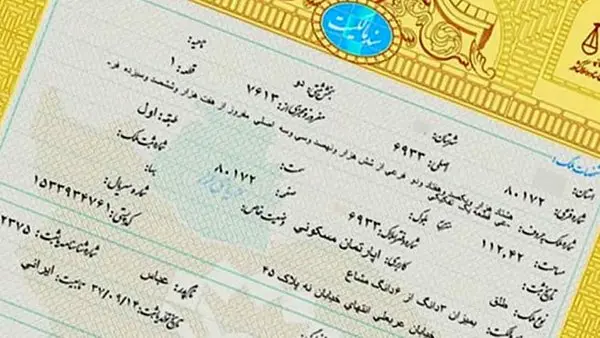 سند مالکیت
مشخصات ملک:
استان:
شهرستان:
بخش ثبتی: دو
ناحیه:
شماره فرعی: ۸۰۱۷۲
اصلی: ۶۹۳۳
مفروز و مجزی از: ۷۶۱۳
قطعه: ۱
هشتاد هزار و یکصد و هفتاد و دو فرعی از شش هزار و نهصد و سی و سه اصلی مفروز از هفت هزار و ششصد و سیزده فر
قطعه یک تفکیکی
مساحت: ۱۱۲,۴۲
بلوک:
سمت:
طبقه: اول
شماره دفتر املاک: ۶۹۳۳
صفحه: ۸۰۱۷۲
شماره ثبت ملک:
تاریخ ثبت:
کاربری: آپارتمان مسکونی
وضعیت خاص:
بها:
نوع ملک: طلق
بمیزان ۳ دانگ از ۶ دانگ مشاع
شماره سریال:
خیابان انتهای خیابان نه پلاک ۴۵
کد ملی: ۱۵۳۳۹۳۴۷۶۱
نام پدر: عباس
شماره شناسنامه یا ثبت: ۲۳۷۵
تاریخ تولد یا ثبت: ۳۷/۰۹/۱۴
تابعیت: ایرانی